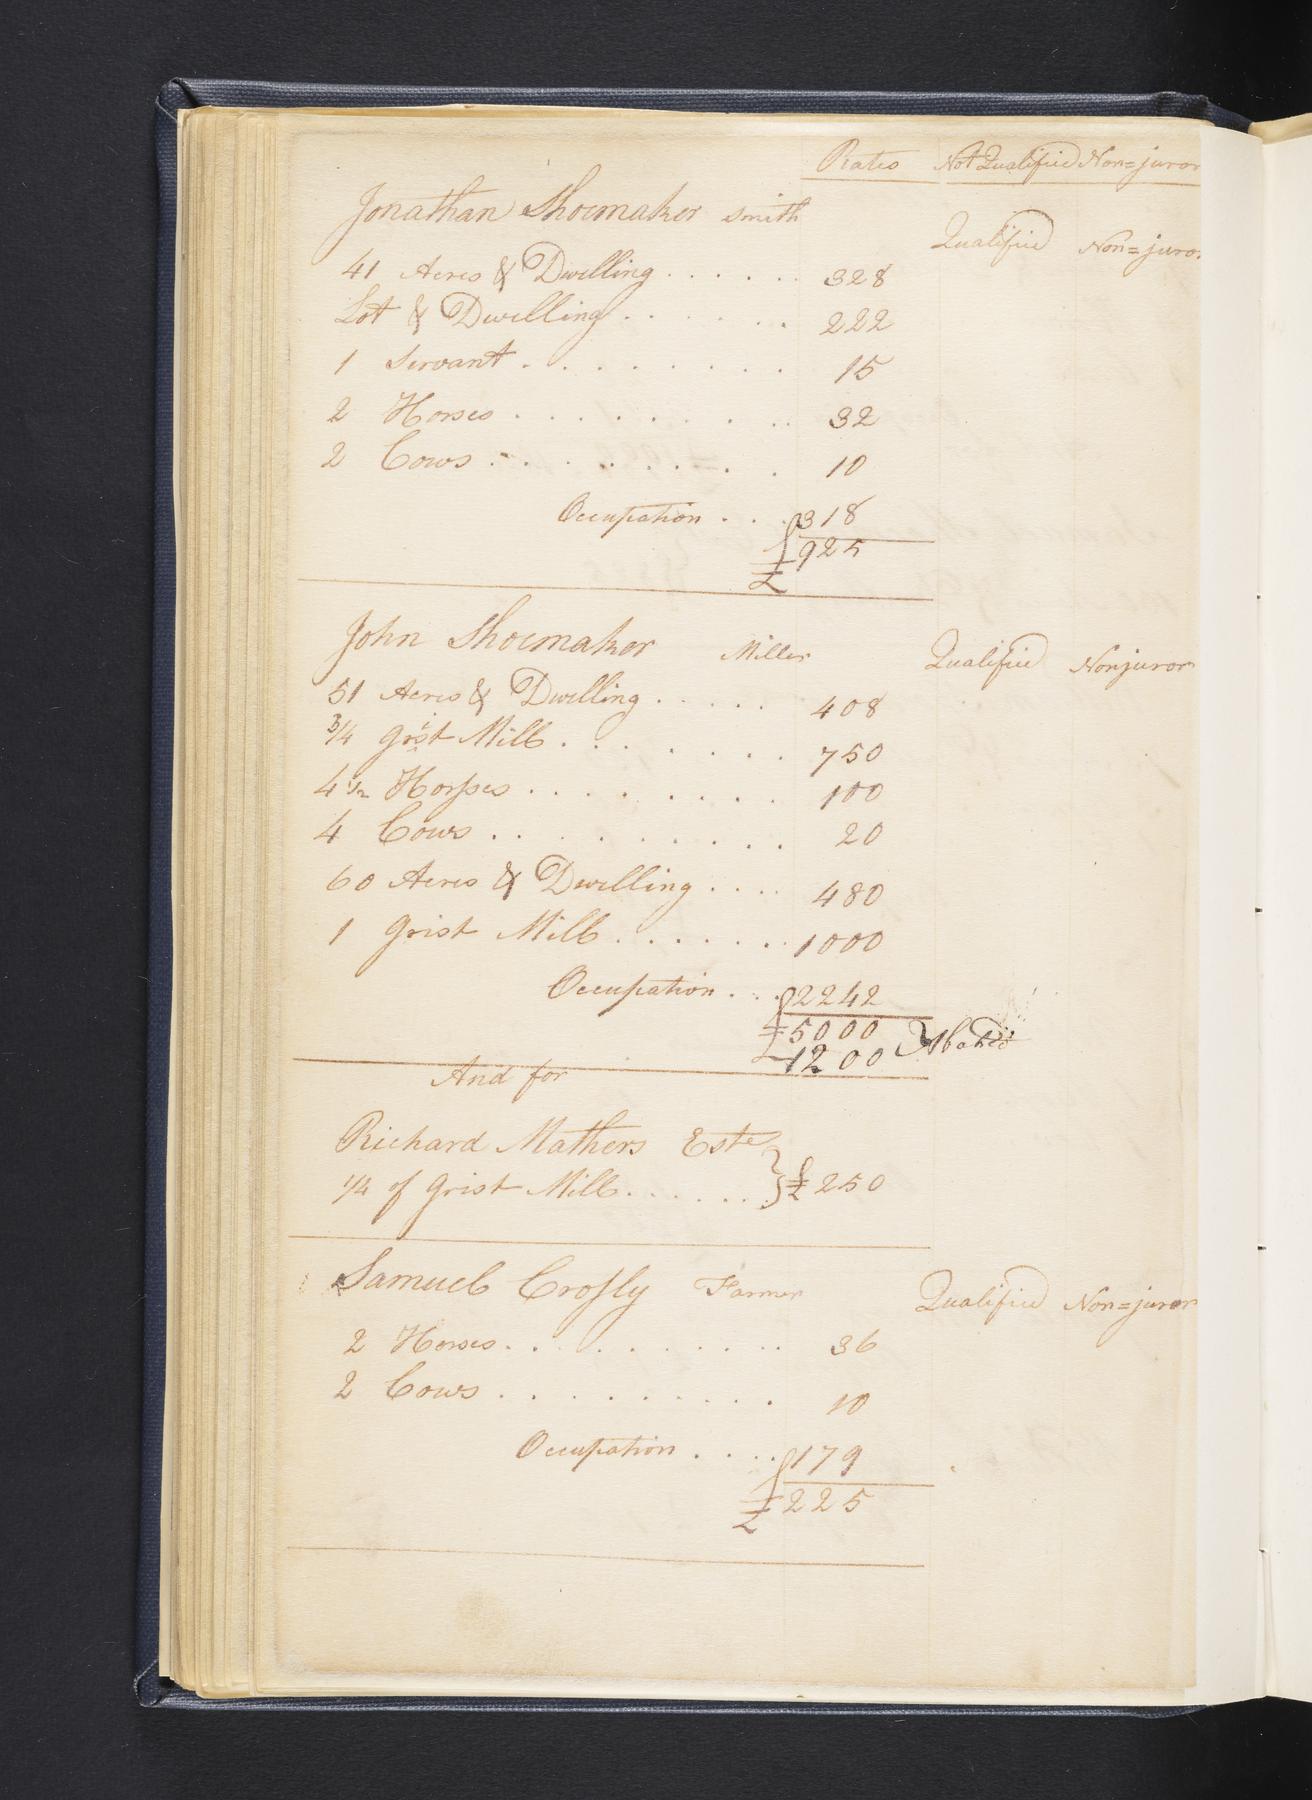 Rates Not Qualified Non=juror
Jonathan Shoemaker Smith Qualified Non=juror
41 Acres & Dwelling . . . . . . 328
Lot & Dwelling . . . . . . 222
1 Servant . . . . . . . . 15
2 Horses . . . . . . . . 32
2 Cows . . . . . . . . . 10
Occupation . . . 318
£ 925
John Shoemaker Miller Qualified Nonjuror
51 Acres & Dwelling . . . . . 408
3/4 Grist Mill . . . . . . . 750
4 1/2 Horses . . . . . . . . 100
4 Cows . . . . . . . . . 20
60 Acres & Dwelling . . . . 480
1 Grist Mill . . . . . . . 1000
Occupation . . . 2242
£ 5000
1200 } Abated
And for
Richard Mathers Este }
1/4 of Grist Mill . . . . . . } £ 250
Samuel Crosly Farmer Qualified Non=juror
2 Horses . . . . . . . . . 36
2 Cows . . . . . . . . . 10
Occupation . . . . 179
£ 225